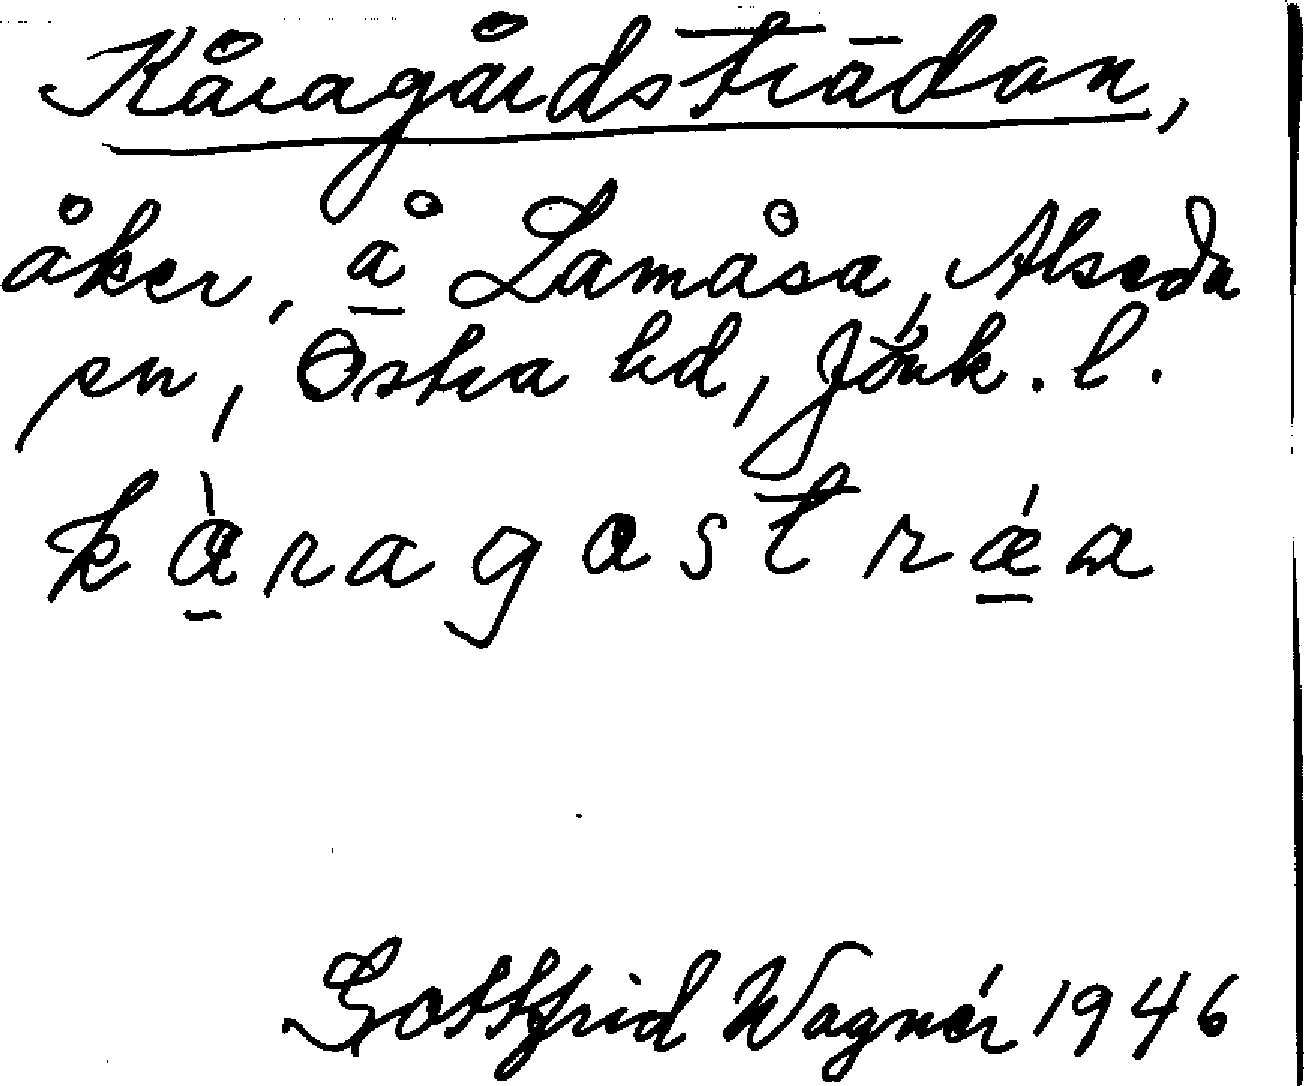 Kåragårdsträdan,
åker, å Lamåsa, Alseda
sn, Östra hd, Jönk. l.
kàragastráa
Gottfrid Wagnér 1946